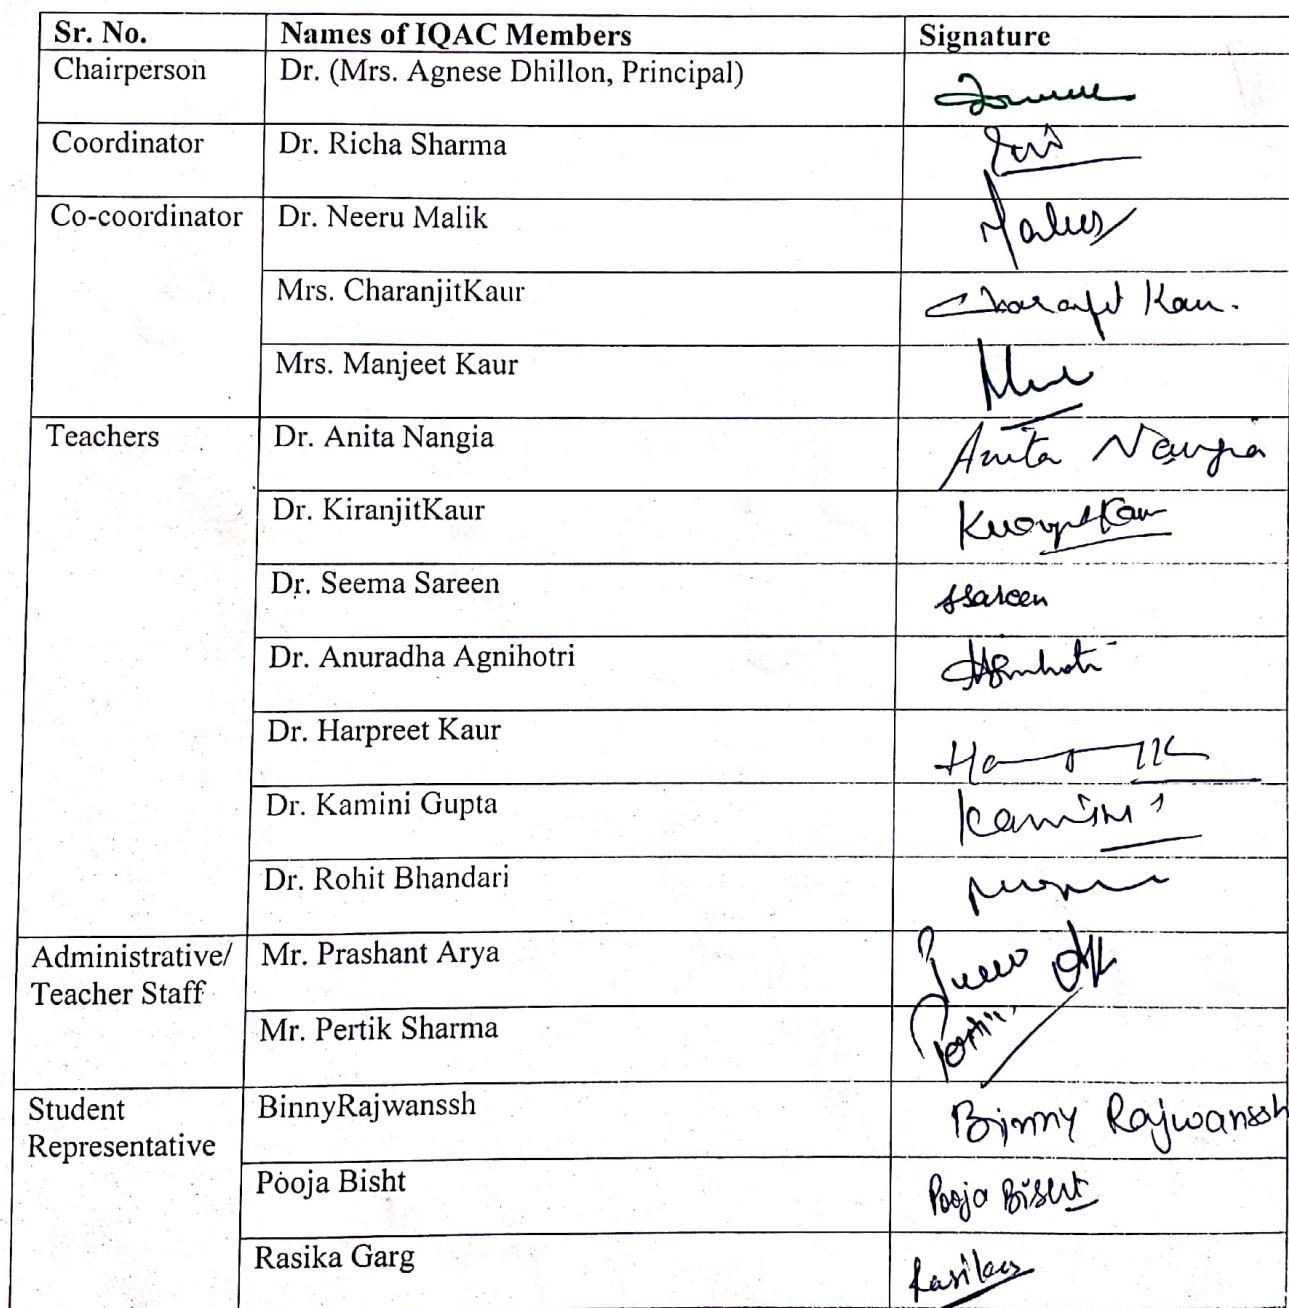 Sr. No. Names of IQAC Members Signature
Chairperson Dr. (Mrs. Agnese Dhillon, Principal)
Coordinator Dr. Richa Sharma
Co-coordinator Dr. Neeru Malik
Mrs. CharanjitKaur Charanjit Kaur.
Mrs. Manjeet Kaur
Teachers Dr. Anita Nangia Anita Nangia
Dr. KiranjitKaur
Dr. Seema Sareen SSareen
Dr. Anuradha Agnihotri
Dr. Harpreet Kaur
Dr. Kamini Gupta Kamini
Dr. Rohit Bhandari
Administrative/ Mr. Prashant Arya
Teacher Staff
Mr. Pertik Sharma
Student BinnyRajwanssh Binny Rajwanssh
Representative
Pooja Bisht Pooja Bisht
Rasika Garg Rasika